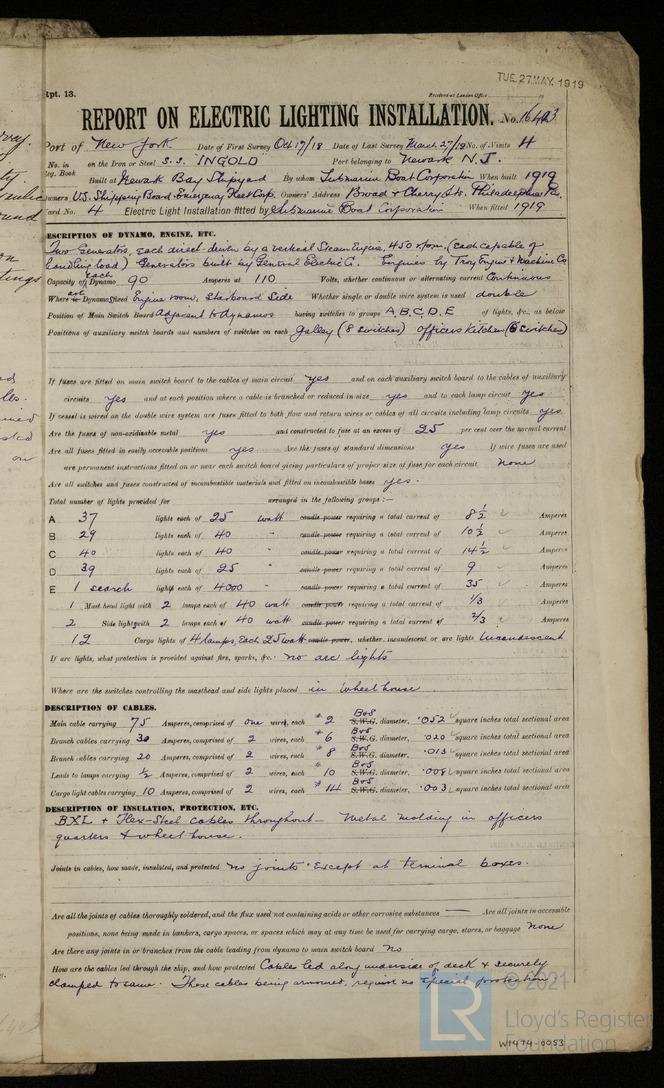 Rpt. 13.
Received at London Office
TUE. 27 MAY. 1919
REPORT ON ELECTRIC LIGHTING INSTALLATION. No.
Port of New York Date of First Survey Oct 17/18 Date of Last Survey March 27/19 No. of Visits 4
No. in Reg. Book on the Iron or Steel S.S. INGOLD Port belonging to Newark N.J.
Built at Newark Bay Shipyard By whom Submarine Boat Corporation When built 1919
Owners U.S. Shipping Board Emergency Fleet Corp. Owners' Address Broad & Cherry Sts. Philadelphia Pa.
Yard No. 4 Electric Light Installation fitted by Submarine Boat Corporation When fitted 1919
DESCRIPTION OF DYNAMO, ENGINE, ETC.
Two Generators, each direct driven by a vertical Steam Engine, 450 r.p.m. (each capable of
handling load) Generators built by General Electric Co. Engines by Troy Engine & Machine Co
Capacity of each Dynamo 90 Amperes at 110 Volts, whether continuous or alternating current Continuous
Where is Dynamo fixed Engine room, Starboard Side Whether single or double wire system is used double
Position of Main Switch Board adjacent to dynamos having switches to groups A, B, C, D, E of lights, &c., as below
Positions of auxiliary switch boards and numbers of switches on each Galley (8 switches) officers kitchen (6 switches)
If fuses are fitted on main switch board to the cables of main circuit yes and on each auxiliary switch board to the cables of auxiliary
circuits yes and at each position where a cable is branched or reduced in size yes and to each lamp circuit yes.
If vessel is wired on the double wire system are fuses fitted to both flow and return wires or cables of all circuits including lamp circuits yes.
Are the fuses of non-oxidizable metal yes and constructed to fuse at an excess of 25 per cent over the normal current
Are all fuses fitted in easily accessible positions yes Are the fuses of standard dimensions yes If wire fuses are used
are permanent instructions fitted on or near each switch board giving particulars of proper size of fuse for each circuit none
Are all switches and fuses constructed of incombustible materials and fitted on incombustible bases yes.
Total number of lights provided for arranged in the following groups :—
A 37 lights each of 25 watt candle-power requiring a total current of 8 1/2 Amperes
B 29 lights each of 40 " candle-power requiring a total current of 10 1/2 Amperes
C 40 lights each of 40 " candle-power requiring a total current of 14 1/2 Amperes
D 39 lights each of 25 " candle-power requiring a total current of 9 Amperes
E 1 search lights each of 4000 " candle-power requiring a total current of 35 Amperes
1 Mast head light with 2 lamps each of 40 watt candle-power requiring a total current of 1/3 Amperes
2 Side light with 2 lamps each of 40 watt candle-power requiring a total current of 2/3 Amperes
12 Cargo lights of 4 lamps, each 25 watt candle-power, whether incandescent or arc lights Incandescent
If arc lights, what protection is provided against fire, sparks, &c. no arc lights
Where are the switches controlling the masthead and side lights placed in wheelhouse
DESCRIPTION OF CABLES.
Main cable carrying 75 Amperes, comprised of one wires, each # 2 B&S S.W.G. diameter, .052 square inches total sectional area
Branch cables carrying 30 Amperes, comprised of 2 wires, each # 6 B&S S.W.G. diameter, .020 square inches total sectional area
Branch cables carrying 20 Amperes, comprised of 2 wires, each # 8 B&S S.W.G. diameter, .013 square inches total sectional area
Leads to lamps carrying 1/2 Amperes, comprised of 2 wires, each 10 B&S S.W.G. diameter, .008 square inches total sectional area
Cargo light cables carrying 10 Amperes, comprised of 2 wires, each # 14 B&S S.W.G. diameter, .003 square inches total sectional area
DESCRIPTION OF INSULATION, PROTECTION, ETC.
BXL & Flex-Steel cables throughout — Metal molding in officers
quarters & wheelhouse.
Joints in cables, how made, insulated, and protected no joints except at terminal boxes.
Are all the joints of cables thoroughly soldered, and the flux used not containing acids or other corrosive substances — Are all joints in accessible
positions, none being made in bunkers, cargo spaces, or spaces which may at any time be used for carrying cargo, stores, or baggage none
Are there any joints in or branches from the cable leading from dynamo to main switch board no
How are the cables led through the ship, and how protected Cables led along underside of deck & securely
clamped to same. These cables being armoured, require no special protection
LR © 2021
Lloyd's Register
Foundation
W1474-0053